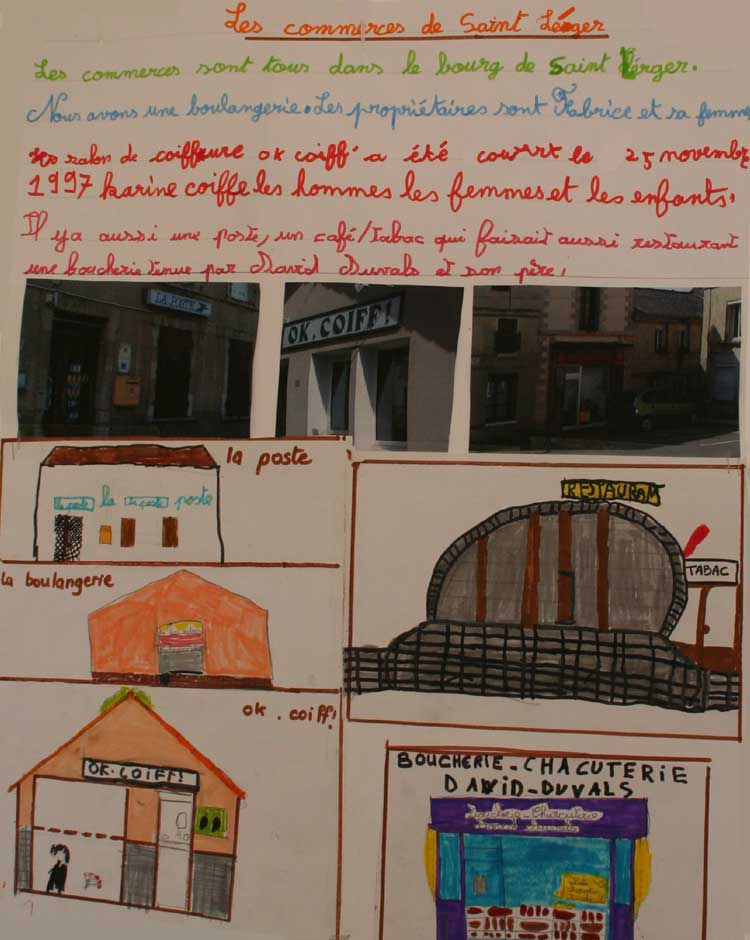 Les commerces de Saint Léger
Les commerces sont tous dans le bourg de Saint Lérger.
Nous avons une boulangerie. Les propriétaires sont Fabrice et sa femme
salon de coiffure ok coiff' a été couvert le 25 novembre
1997 karine coiffe les hommes les femmes et les enfants.
Il ya aussi une poste, un café/tabac qui faisait aussi restaurant
une boucherie tenue par David Duvals et son père.
LA POSTE
OK. COIFF!
la poste
la poste
RESTAURAM
TABAC
la boulangerie
ok. coiff!
OK. COIFF!
BOUCHERIE-CHACUTERIE
DAVID-DUVALS
Boucherie-Charcuterie